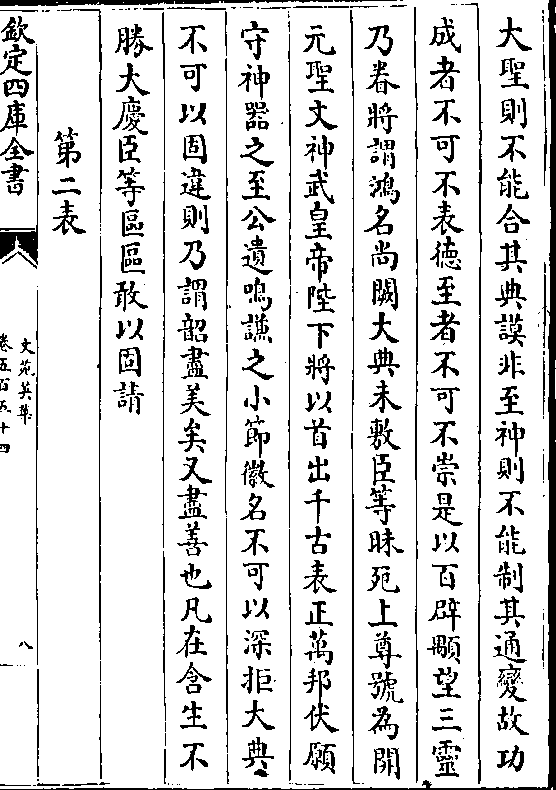 大聖則不能合其典謨非至神則不能制其通變故功
成者不可不表德至者不可不崇是以百辟顒望三靈
乃眷將謂鴻名尚闕大典未敷臣等昧死上尊號為開
元聖文神武皇帝陛下將以首出千古表正萬邦伏願
守神器之至公遺鳴謙之小節徽名不可以深拒大典
不可以固違則乃謂韶盡美矣又盡善也凡在含生不
勝大慶臣等區區敢以固請
第二表
欽定四庫全書
文苑英華
卷五百五十四
八